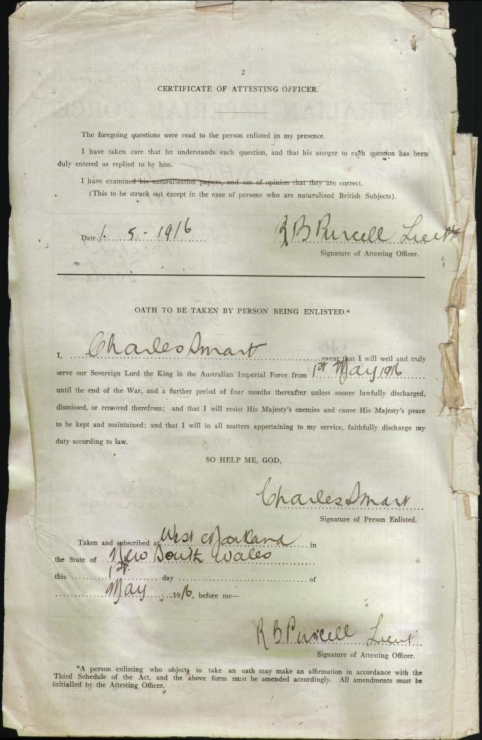 2
CERTIFICATE OF ATTESTING OFFICER.
The foregoing questions were read to the person enlisted in my presence.
I have taken care that he understands each question, and that his answer to each question has been
duly entered as replied to by him.
I have examined his naturalization papers, and am of opinion that they are correct.
(This to be struck out except in the case of persons who are naturalized British Subjects).
Date 1. 5 - 1916 R B Purcell Lieut
Signature of Attesting Officer.
OATH TO BE TAKEN BY PERSON BEING ENLISTED.*
I, Charles Smart swear that I will well and truly
serve our Sovereign Lord the King in the Australian Imperial Force from 1st May 1916
until the end of the War, and a further period of four months thereafter unless sooner lawfully discharged,
dismissed, or removed therefrom; and that I will resist His Majesty's enemies and cause His Majesty's peace
to be kept and maintained; and that I will in all matters appertaining to my service, faithfully discharge my
duty according to law.
SO HELP ME, GOD,
Charles Smart
Signature of Person Enlisted.
Taken and subscribed at West Maitland in
the State of New South Wales
this 1st day of
May 1916, before me—
R B Purcell Lieut
Signature of Attesting Officer.
*A person enlisting who objects to take an oath may make an affirmation in accordance with the
Third Schedule of the Act, and the above form must be amended accordingly. All amendments must be
initialled by the Attesting Officer.